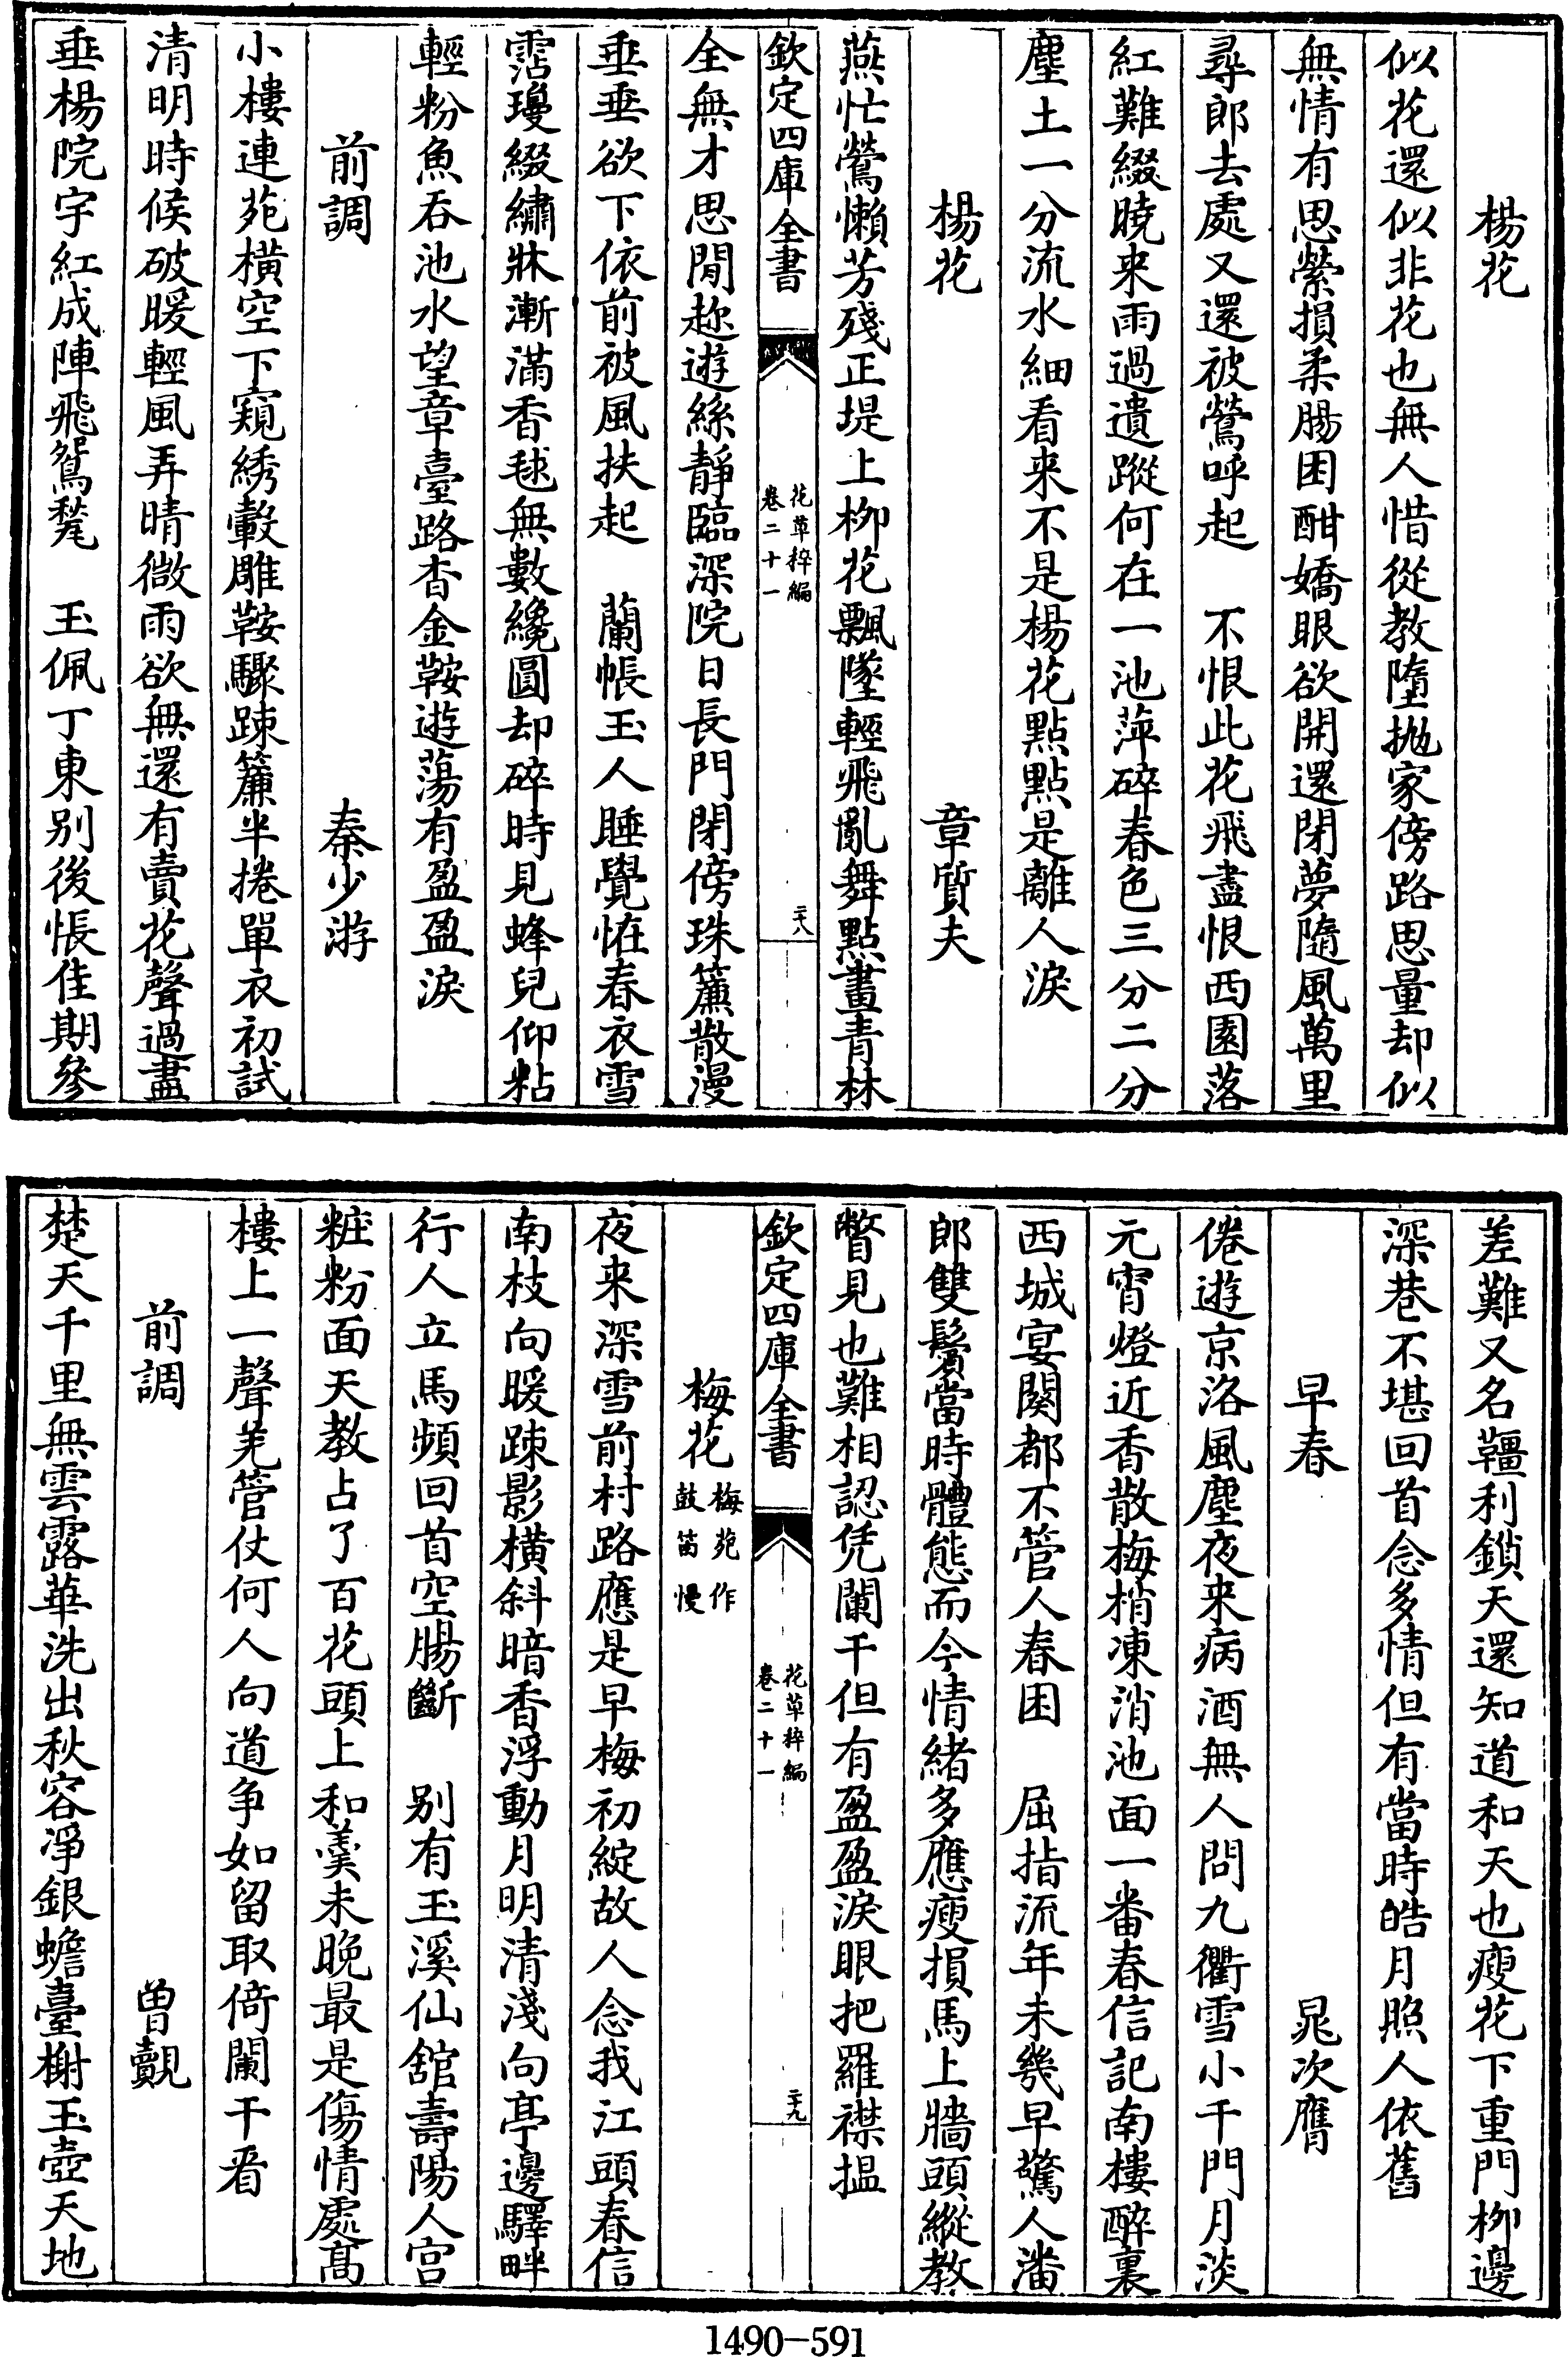 楊花
似花還似非花也無人惜從教墮拋家傍路思量却似
無情有思縈損柔腸困酣嬌眼欲開還閉夢隨風萬里
尋郎去處又還被鶯呼起　不恨此花飛盡恨西園落
紅難綴曉来雨過遺蹤何在一池萍碎春色三分二分
塵土一分流水細看来不是楊花點點是離人淚
楊花　章質夫
燕忙鶯懶芳殘正堤上柳花飄墜輕飛亂舞點畫青林
欽定四庫全書
花草稡編
卷二十一
二十八
全無才思閒趂遊絲靜臨深院日長門閉傍珠簾散漫
垂垂欲下依前被風扶起　蘭帳玉人睡覺恠春衣雪
霑瓊綴繡牀漸滿香毬無數纔圓却碎時見蜂兒仰粘
輕粉魚吞池水望章臺路杳金鞍遊蕩有盈盈淚
前調　秦少游
小樓連苑橫空下窺綉轂雕鞍驟踈簾半捲單衣初試
清明時候破暖輕風弄晴微雨欲無還有賣花聲過盡
垂楊院宇紅成陣飛鴛甃　玉佩丁東别後悵佳期參
差難又名韁利鎖天還知道和天也瘦花下重門柳邊
深巷不堪回首念多情但有當時皓月照人依舊
早春　晁次膺
倦遊京洛風塵夜来病酒無人問九衢雪小千門月淡
元宵燈近香散梅梢凍消池面一番春信記南樓醉裏
西城宴闋都不管人春困　屈指流年未幾早驚人潘
郎雙鬢當時體態而今情緒多應瘦損馬上牆頭縱教
瞥見也難相認凭闌干但有盈盈淚眼把羅襟揾
欽定四庫全書
花草稡編
卷二十一
二十九
梅花 梅苑作
鼓笛慢
夜来深雪前村路應是早梅初綻故人念我江頭春信
南枝向暖踈影橫斜暗香浮動月明清淺向亭邊驛畔
行人立馬頻回首空腸斷　别有玉溪仙舘壽陽人宫
粧粉面天教占了百花頭上和羹未晚最是傷情處髙
樓上一聲羌管仗何人向道争如留取倚闌干看
前調　曾覿
楚天千里無雲露華洗出秋容淨銀蟾臺榭玉壺天地
1490-591